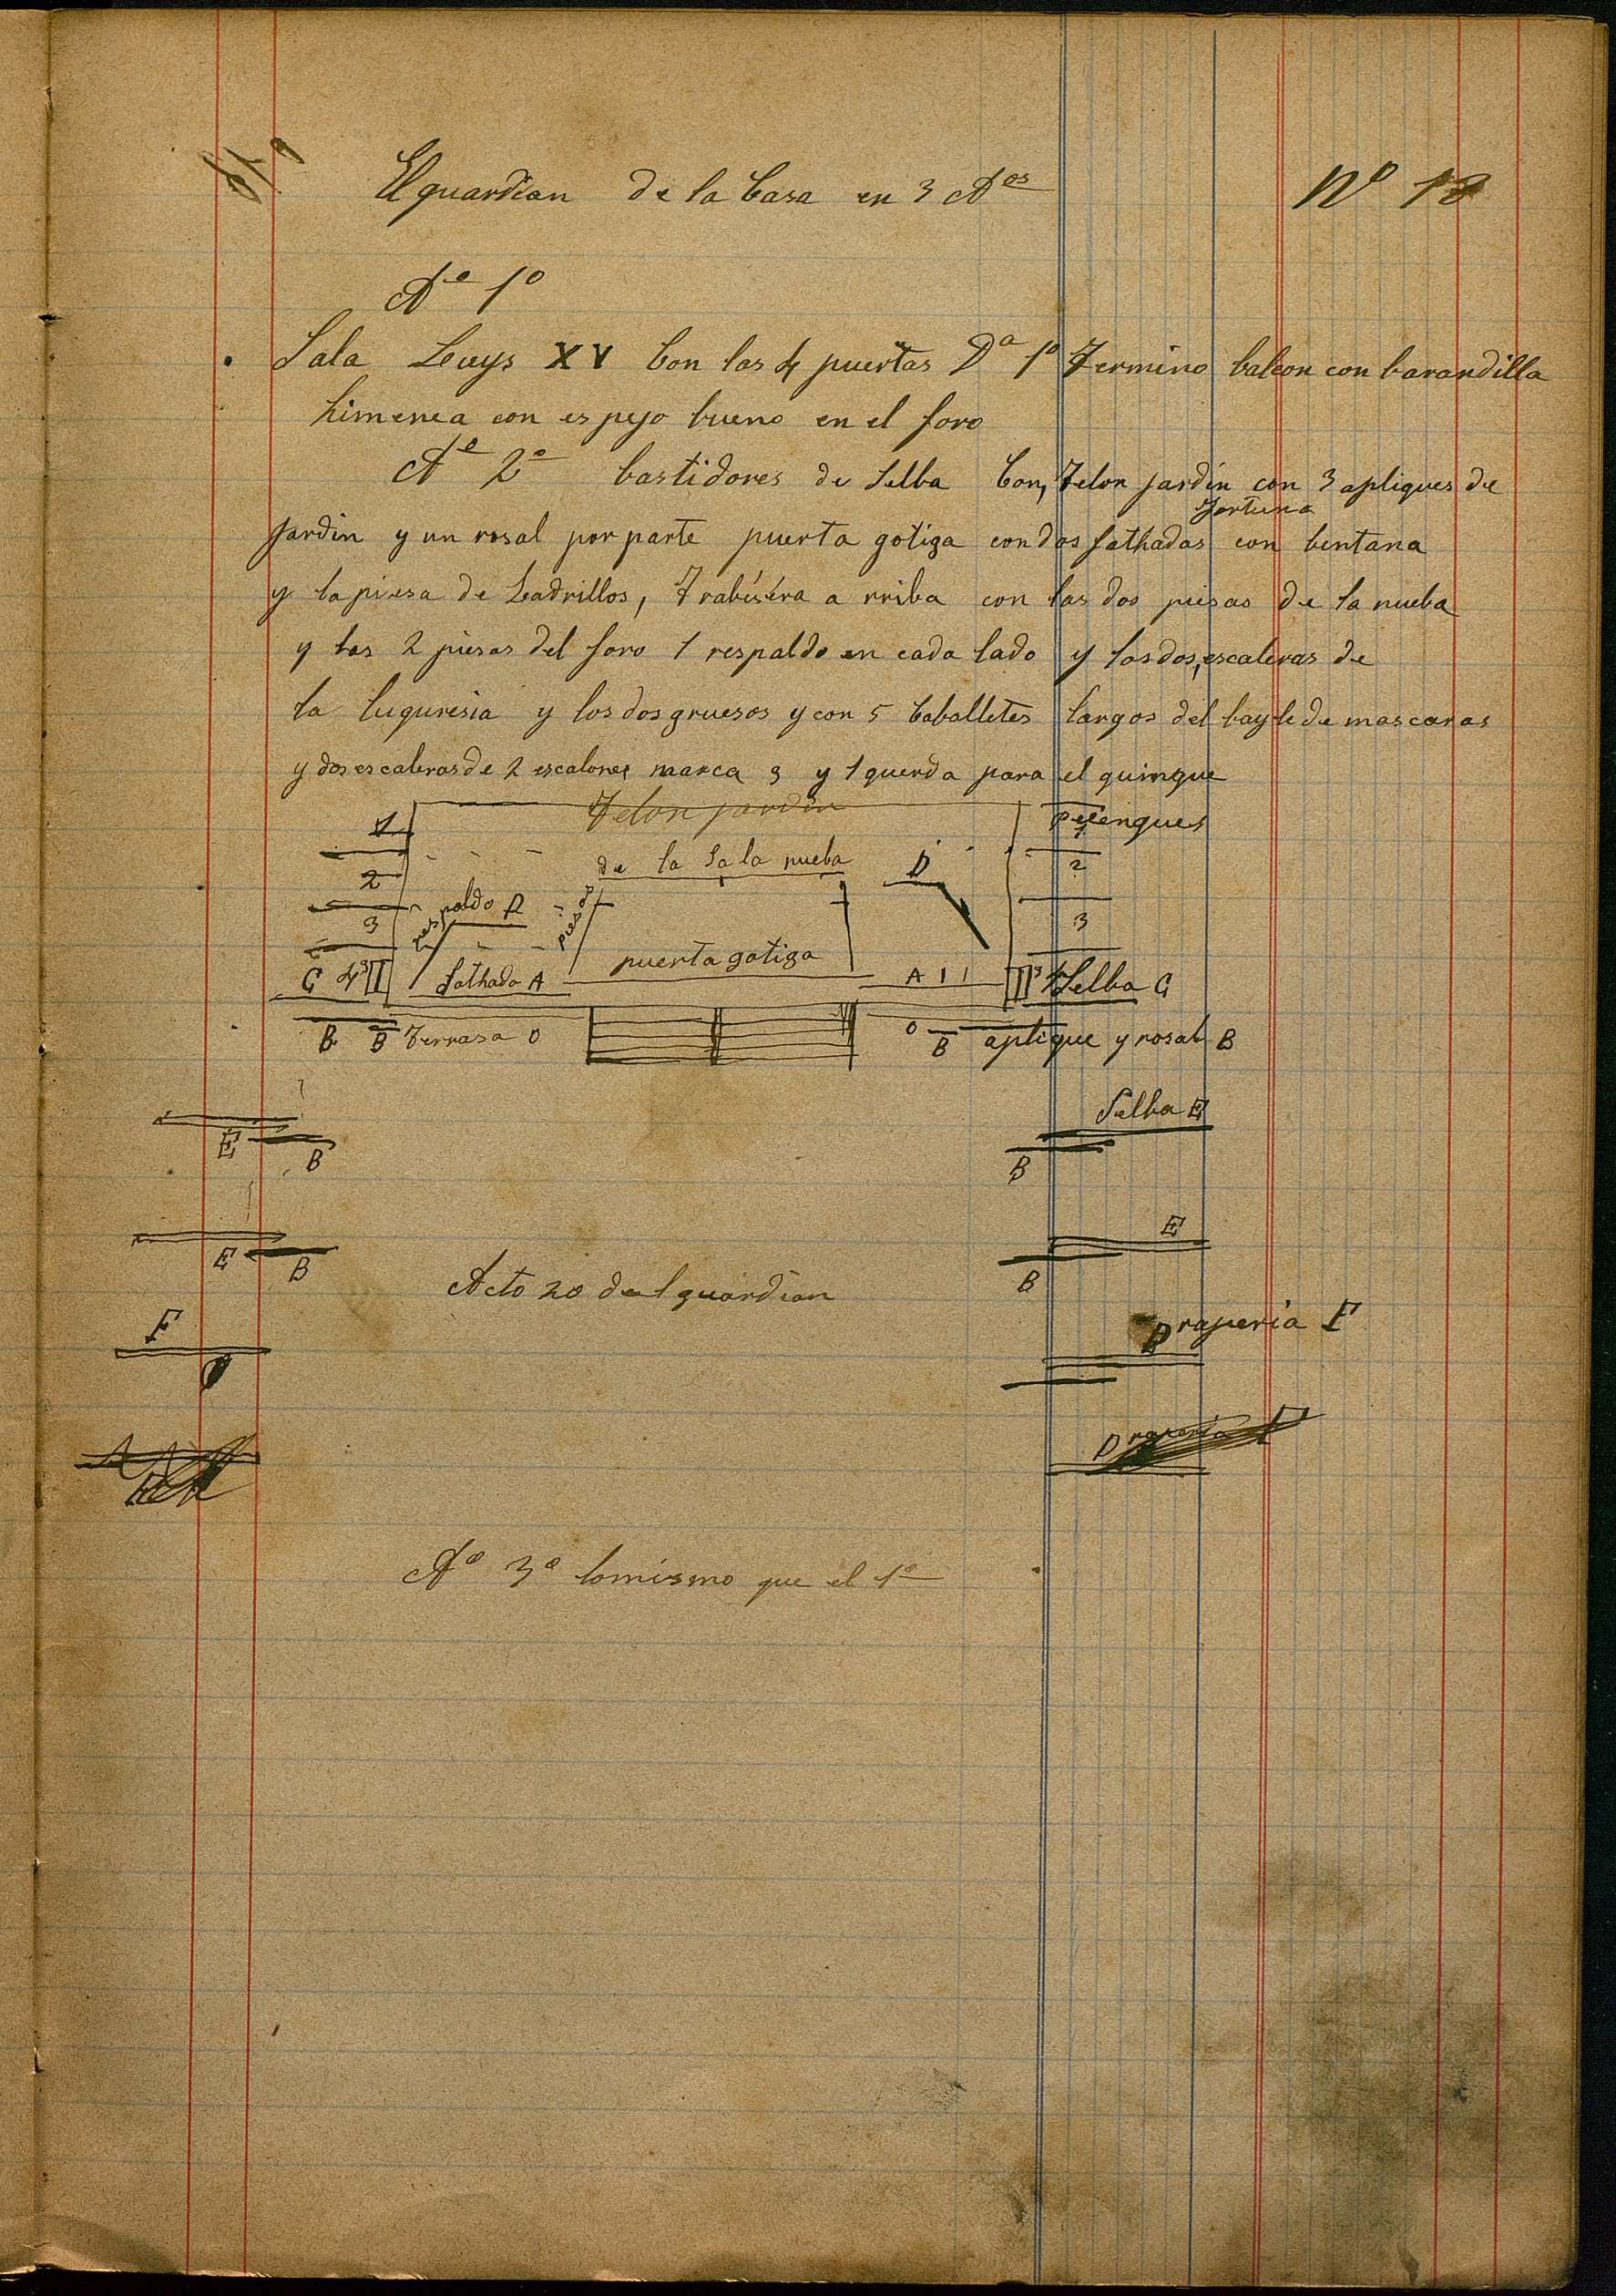 El guardian de la Casa en 3 Aos
Nº 18
Ao 1º
Sala Luys XV Con las 4 puertas Da 1º Termino balcon con barandilla
himenea con espejo bueno en el foro
Ao 2º bastidores de Selba Con, Telon jardin con 3 apliques de
fortuna
jardin y un rosal por parte puerta gotiga con dos fathadas con bentana
y la piesa de Ladrillos, Trabiséra a rriba con las dos piesas de la nueba
y las 2 piesas del foro 1 respaldo en cada lado y las dos, escaleras de
la luguresia y los dos gruesos y con 5 Caballetes largos del bayle de mascaras
y dos escaleras de 2 escalones marca 3 y 1 querda para el quinque
Telon jardin
1
2
3
de la Sala nueba
D
2
3
respaldo D
G 4
fathada A
puerta gotiga
A
Selba G
B B Terrasa O
O B aplique y rosal B
E B
Selba E
B
E B
E
B
Acto 2o del guardian
F
Draperia F
Draperia
Ao 3º lo mismo que el 1º